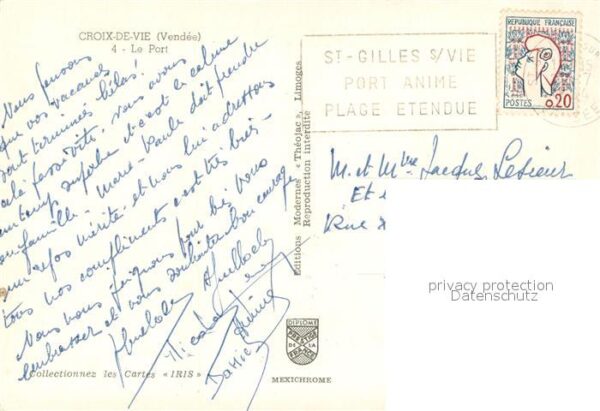 CROIX-DE-VIE (Vendée)
4 - Le Port
Nous pensons
que vos vacances
sont terminées hélas!
passivité, nous avons
un temps superbe et c'est le calme
en famille - Marie-Paule doit prendre
un repos mérité, et nous lui adressons
tous nos compliments c'est très bien -
Nous nous joignons pour bien vous
embrasser et vous souhaitons bon courage
Nicole
Collectionnez les Cartes « IRIS »
Editions Modernes « Théojac », Limoges
Reproduction interdite
DIPLOME
PRESTIGE
DE LA
FRANCE
MEXICHROME
ST-GILLES S/VIE
PORT ANIME
PLAGE ETENDUE
REPUBLIQUE FRANÇAISE
POSTES 0,20
M. et Mme Jacques Lesieur
Et
Rue
privacy protection
Datenschutz